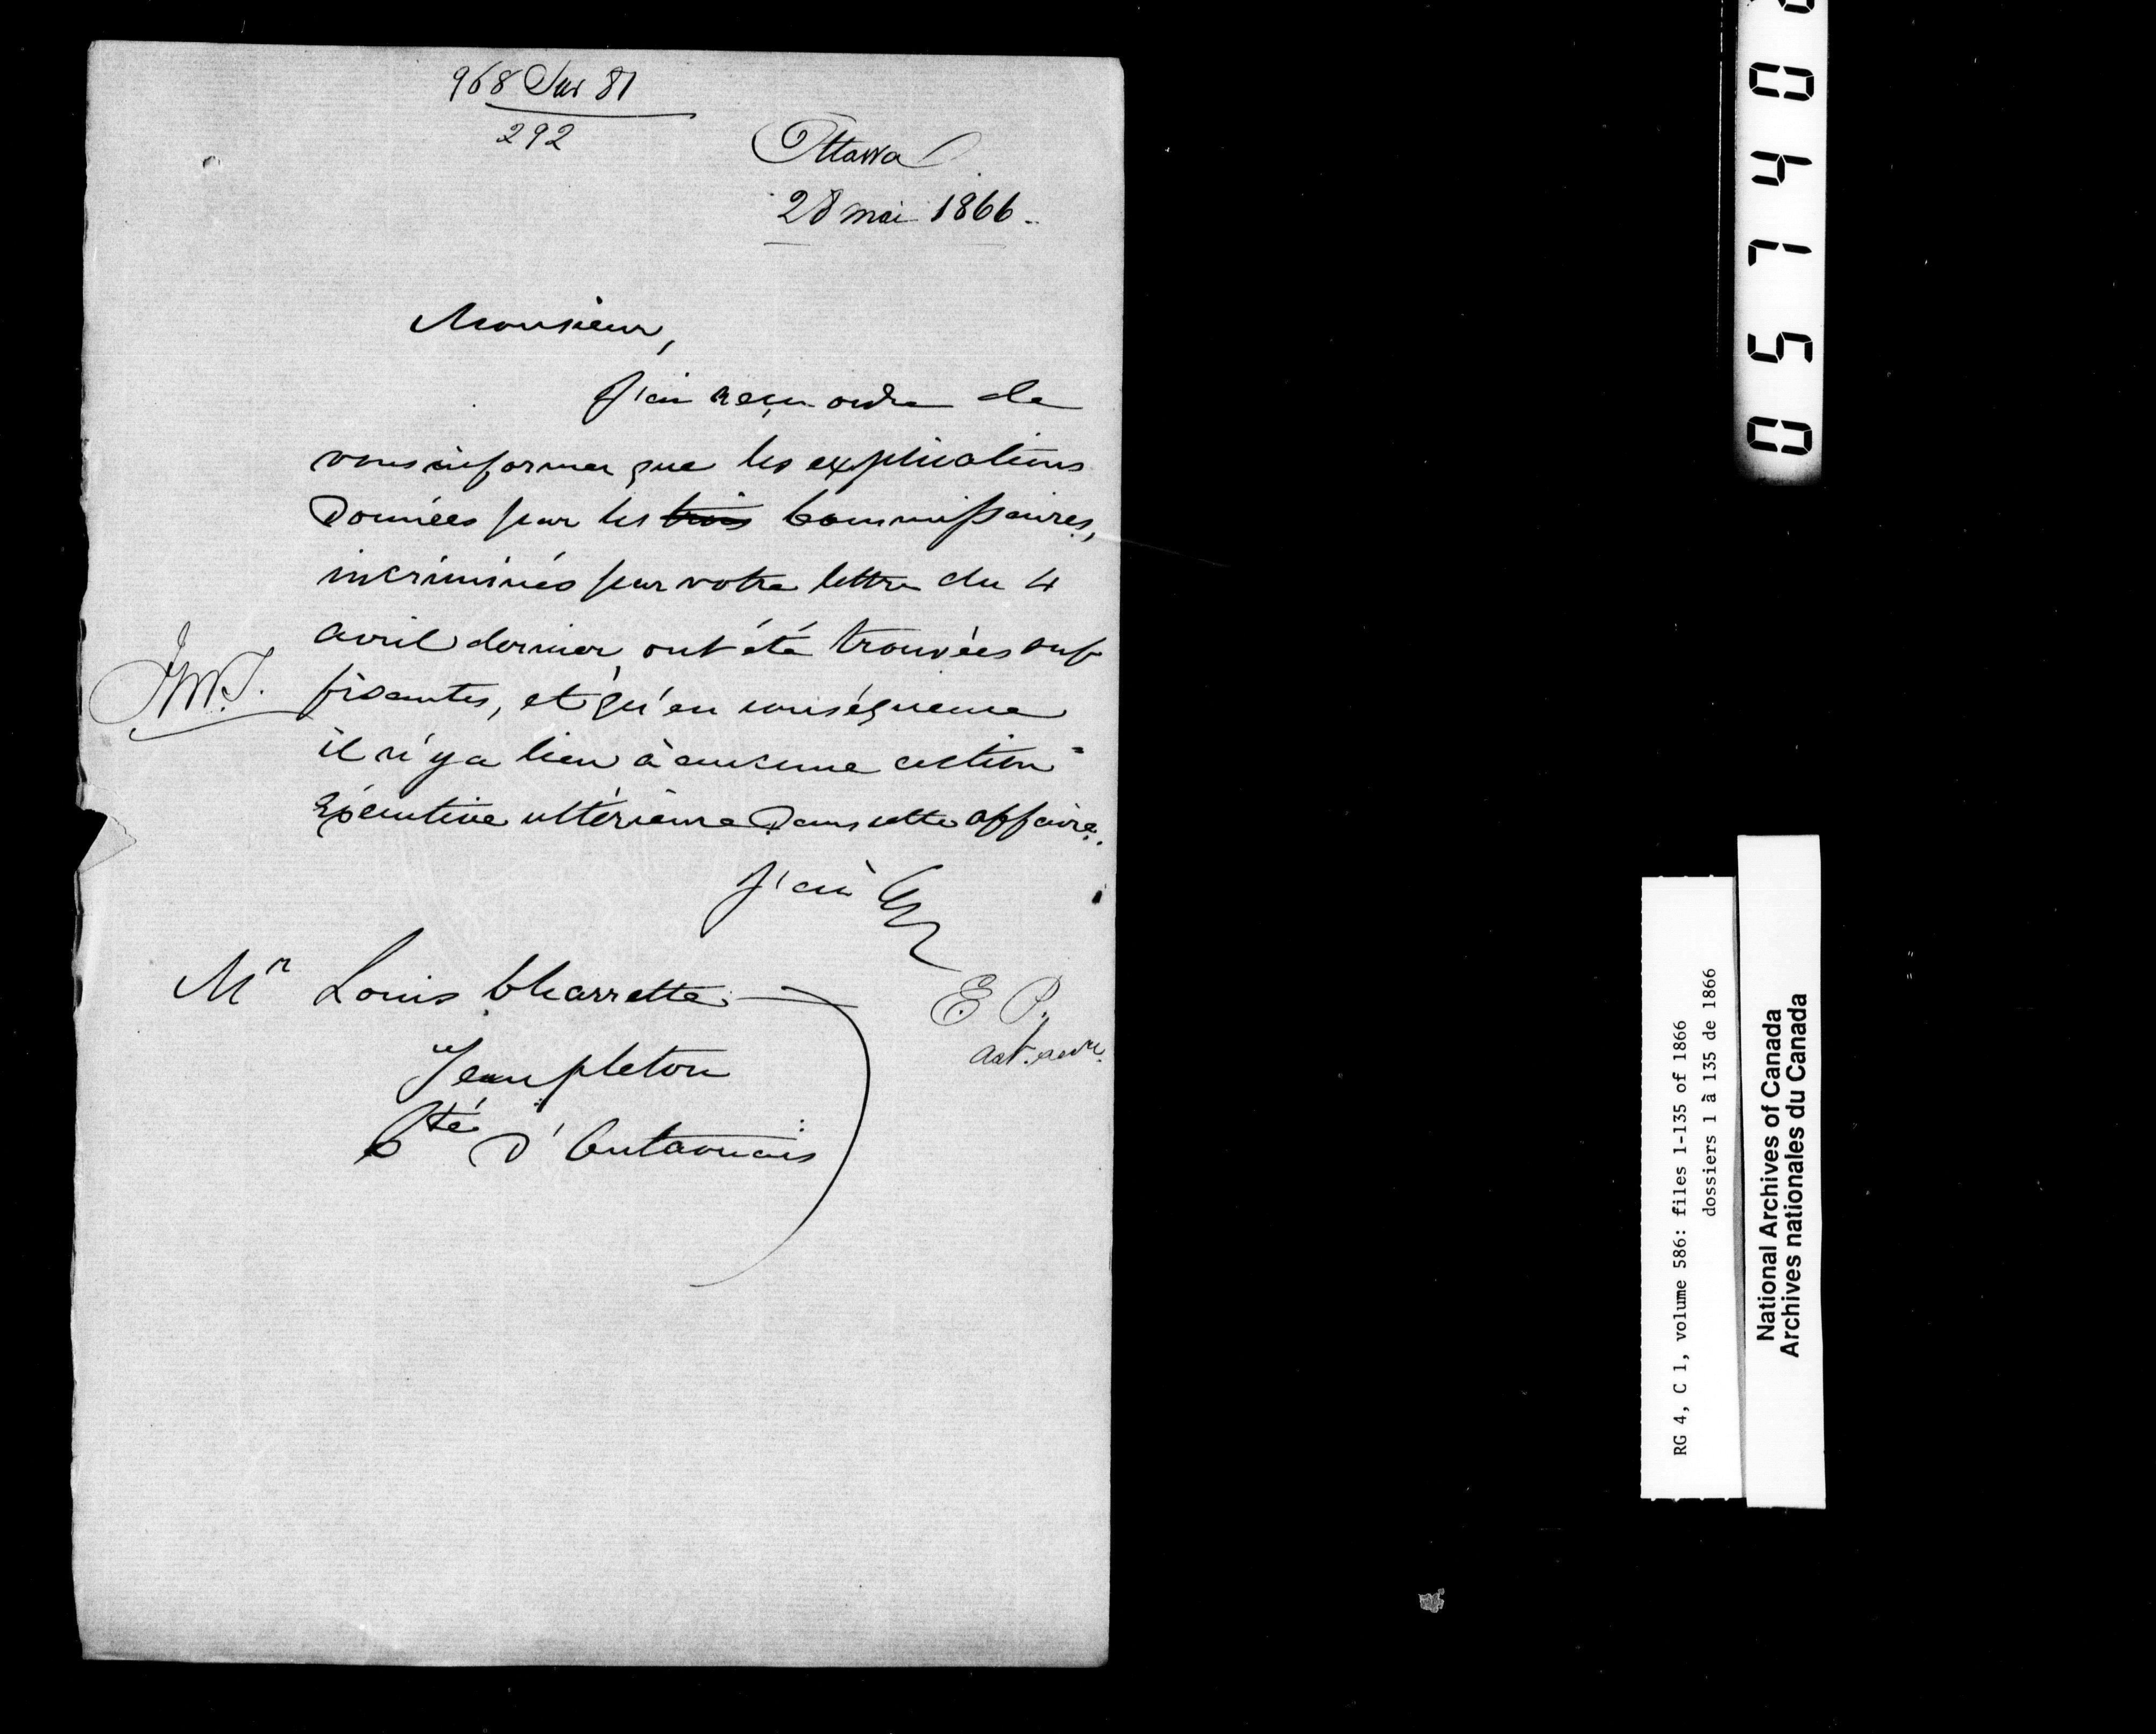 968 Sur 81
292
Ottawa
28 mai 1866.
Monsieur,
J'ai reçu ordre de
vous informer que les explications
Données par les trois Commissaires,
incriminés par votre lettre du 4
avril dernier, ont été trouvées suf
fisantes, et qu'en conséquence
il n'y a lieu à aucune action
Exécutive ultérieure Dans cette affaire.
J'ai &c
Mr Louis Charrette
Templeton
Cté d'Outaouais
E. P.
ast. secre.
National Archives of Canada
Archives nationales du Canada
RG 4, C 1, volume 586: files 1-135 of 1866
dossiers 1 à 135 de 1866